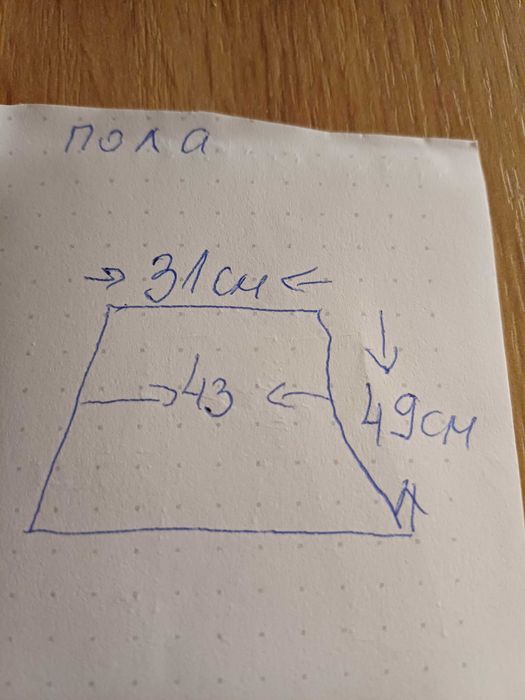 пола
31см
43
49см